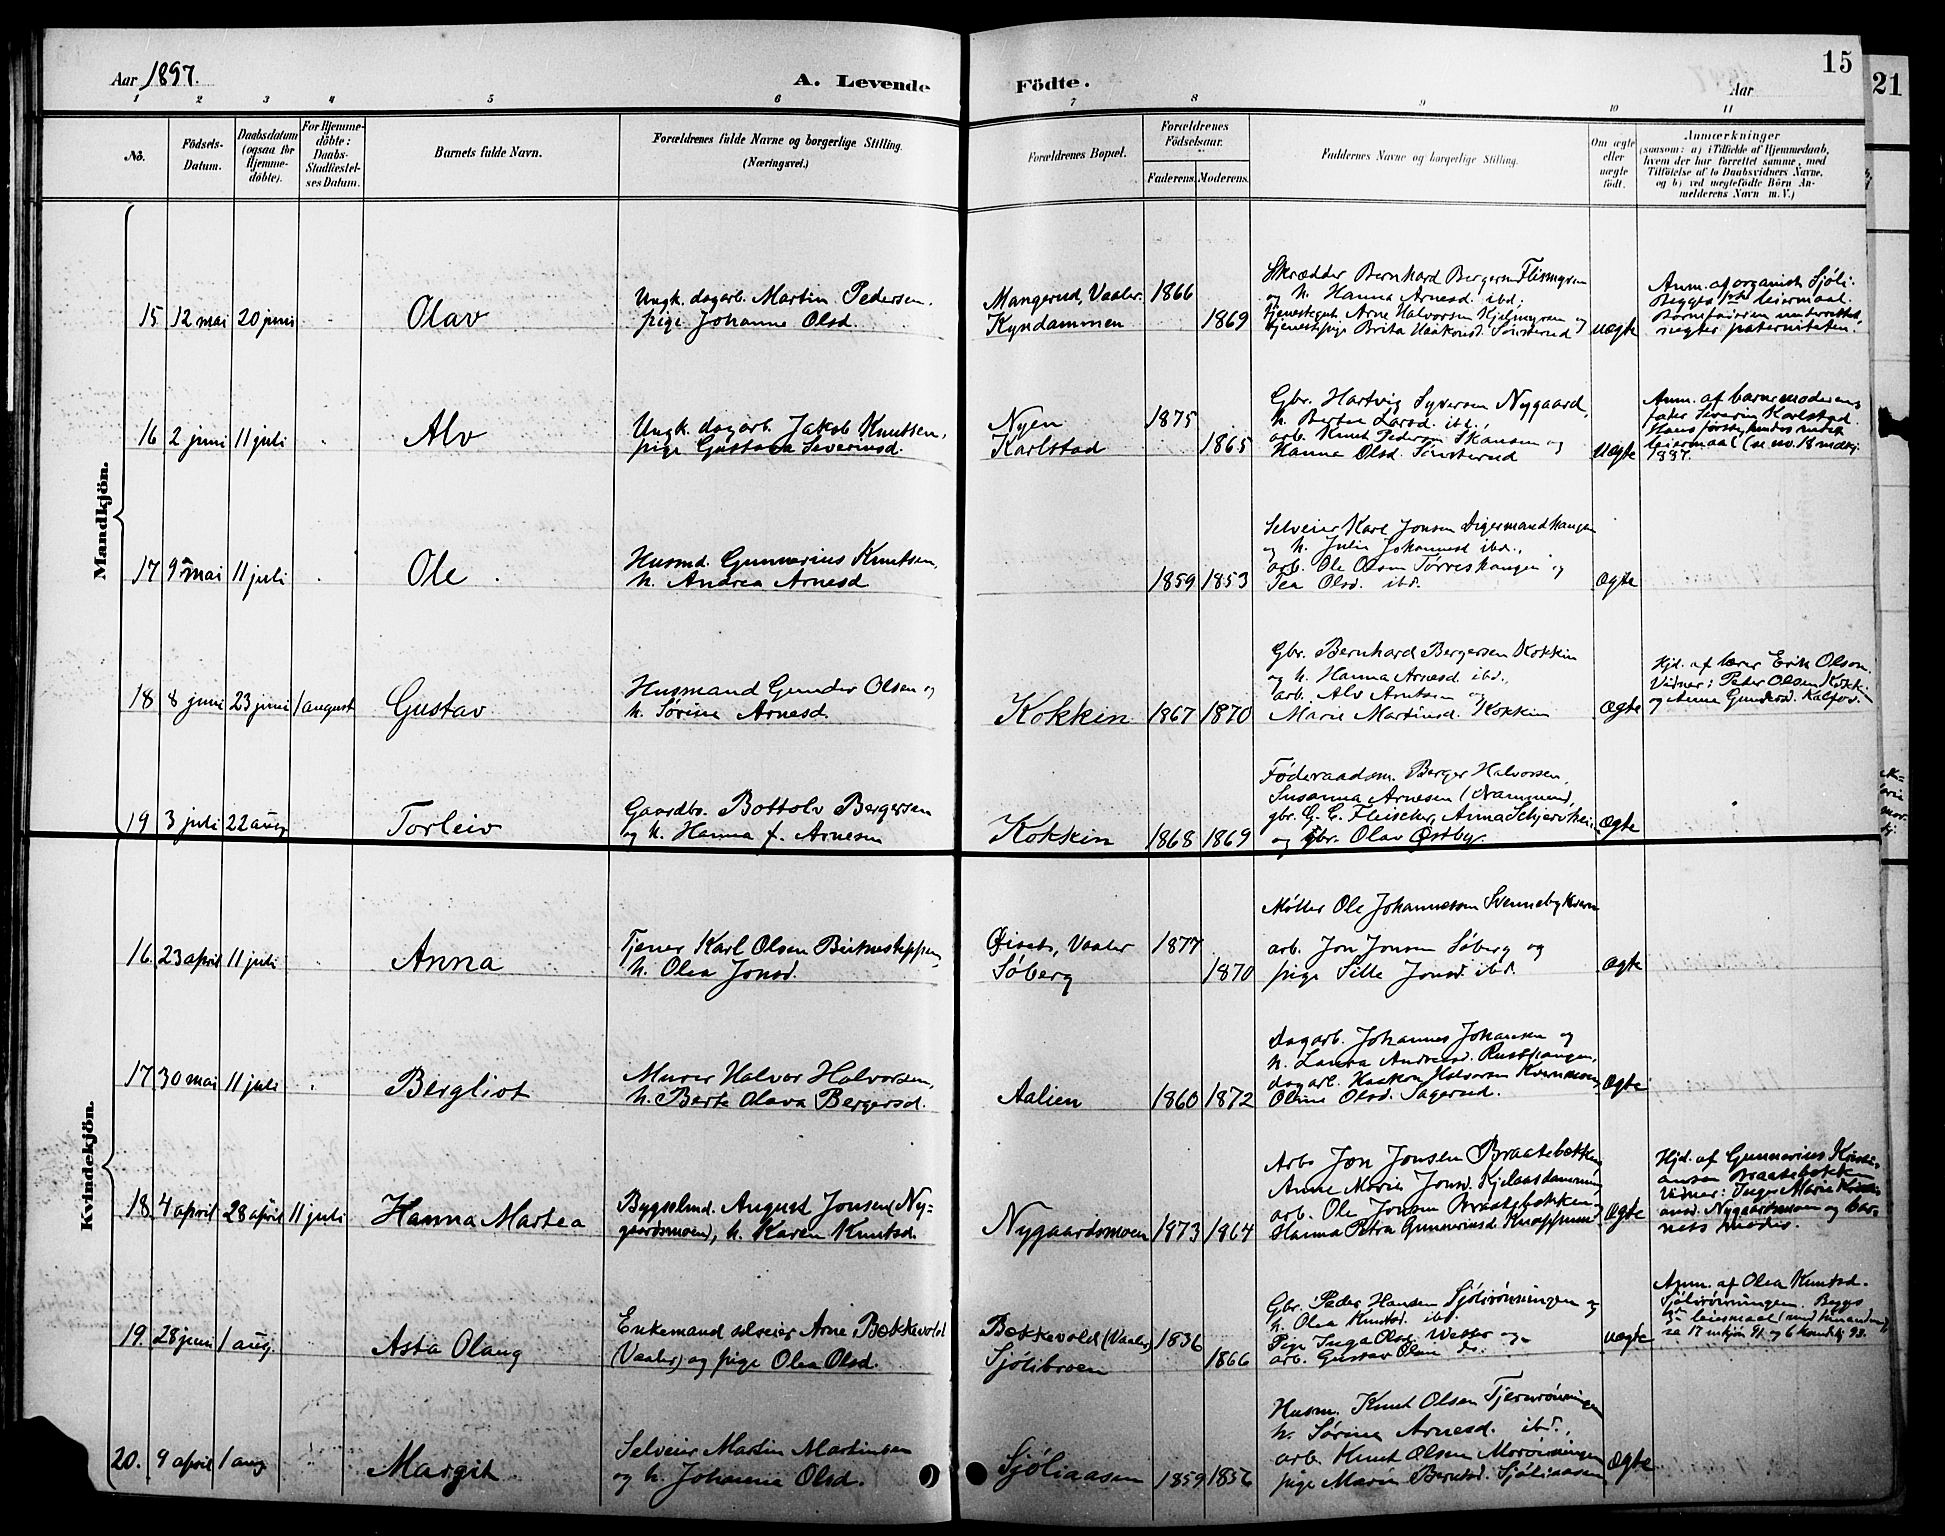 Aar 1897.
A. Levende Födte.
Aar
15
21
1 2 3 4 5 6 7 8 9 10 11
Nö.
Födsels-
Datum.
Daabsdatum
(ogsaa för
Hjemme-
döbte).
For Hjemme-
döbte:
Daabs-
Stadfæstel-
ses Datum.
Barnets fulde Navn.
Forældrenes fulde Navne og borgerlige Stilling.
(Næringsvei.)
Forældrenes Bopæl.
Forældrenes
Födselsaar.
Faderens. Moderens.
Faddernes Navne og borgerlige Stilling.
Om ægte
eller
uægte
født.
Anmærkninger
(saasom: a) i Tilfælde af Hjemmedaab,
hvem der har forrettet samme, med
Tilföielse af to Daabsvidners Navne,
og b) ved uægtefödte Börn An-
melderens Navn m. V.)
Mandkjön.
15 12 mai 20 juni
Olav
Ungk. dagarb. Martin Pedersen.
pige Johanne Olsd.
Mangerud, Vaaler.
Kyndammen
1866
1869
Skrædder Bernhard Bergersen Flismyren
og h. Hanna Arnesd. ibd.
tjenestegut Arne Halvorsen Kjelmyren og
tjenestpige Brita Haakonsd. Sønsterud
uægte
Anm. af organist Sjöli.
Begges 1ste leiermaal.
Barnefaderen underrettet,
negter paterniteten.
16 2 juni 11 juli
Alv
Ungk. dagarb. Jakob Knutsen,
pige Gustava Severinsd.
Nyen
Karlstad
1875
1865
Gbr. Hartvig Syversen Nygaard,
h. Berthe Larsd. ibd.,
arb. Knut Pedersen Skansen og
Hanna Olsd. Sønsterud
uægte
Anm. af barnemoderens
fader Severin Karlstad
Hans første, hendes andet
leiermaal (se no. 18 mdkj.
1887.
17 9 mai 11 juli
Ole
Husmd. Gunnerius Knutsen,
h. Andrea Arnesd
1859 1853
Selveier Karl Jonsen Digermandhaugen
og h. Julie Johannesd ibd.,
arb. Ole Olsen Torreshaugen og
Tea Olsd. ibd.
Ægte
18 8 juni 23 juni 1 august
Gustav
Husmand Gunder Olsen og
h. Sørine Arnesd
Kokkin
1867 1870
Gbr. Bernhard Bergersen Kokkin
og h. Hanna Arnesd ibd.,
arb. Alv Arntsen og
Marie Martinsd. Kokkin
Ægte
Hjd. af lærer Erik Olsen.
Vidner: Peter Olsen Kokkin
og Anne Gundersd. Kalfos.
19 3 juli 22 aug
Torleiv
Gaardbr. Bottolv Bergersen
og h. Hanna f. Arnesen
Kokkin
1868 1869
Föderaadsm. Berger Halvorsen,
Susanna Arnesen
gbr. G. E. Fleischer, Anna
og gbr. Olav Østby.
Ægte
Kvindekjön.
16. 23 april 11 juli
Anna
Tjener Karl Olsen
h. Olea Jonsd.
Øiset, Vaaler
Søberg
1877
1870
Møller Ole Johannesen Svenneby Kværn
arb. Jon Jonsen Søberg og
pige Sille Jonsd. ibd.
Ægte
17 30 mai 11 juli
Bergliot
Murer Halvor Halvorsen,
h. Berte Olava Bergersd.
Aalien
1860 1872
dagarb. Johannes Johansen og
h. Laura Andreasd.
dagarb. Haakon Halvorsen Kvernmoen,
Oline Olsd. Sagerud.
Ægte
18 4 april 28 april 11 juli
Hanna Martea
Bygselmd. August Jonsen (Ny-
gaardsmoen), h. Karen Knutsd.
Nygaardsmoen
1873 1864
Arb. Jon Jonsen Braatebækken
Anne Marie Jonsd. Kjelaasdammen,
arb. Ole Jonsen Braatebækken,
Hanna Petra Gunneriusd
Ægte
Hjd. af Gunnerius Kristi-
ansen Braatebækken
Vidner: Inger Marie
ansd. Nygaardsmoen og bar-
nets moder.
19. 28 juni 1 aug.
Asta Olaug
Enkemand selveier Arne Bækkevold
(Vaaler) og pige Olea Olsd.
Bækkevold (Vaaler)
Sjölibroen
1836
1866
Gbr. Peder Hansen Sjölirönningen og
h. Olea Knutsd. ibd.
Pige Inga Olsd. og
arb. Gustav Olsen do.
uægte
Anm. af Olea Knutsd.
Sjölirönningen. Begges
3die leiermaal (med hinanden),
se 17 mkjön 91 og 6 kvindkj 93.
20. 9 april 1 aug
Margit
Selveier Martin Martinsen
og h. Johanna Olsd.
Sjöliaasen
1859 1856
Husm. Knut Olsen Tjernrönningen
h. Sørine Arnesd. ibd.,
arb. Knut Olsen Morönningen
pige Marie Berntsd. Sjöliaasen
Ægte